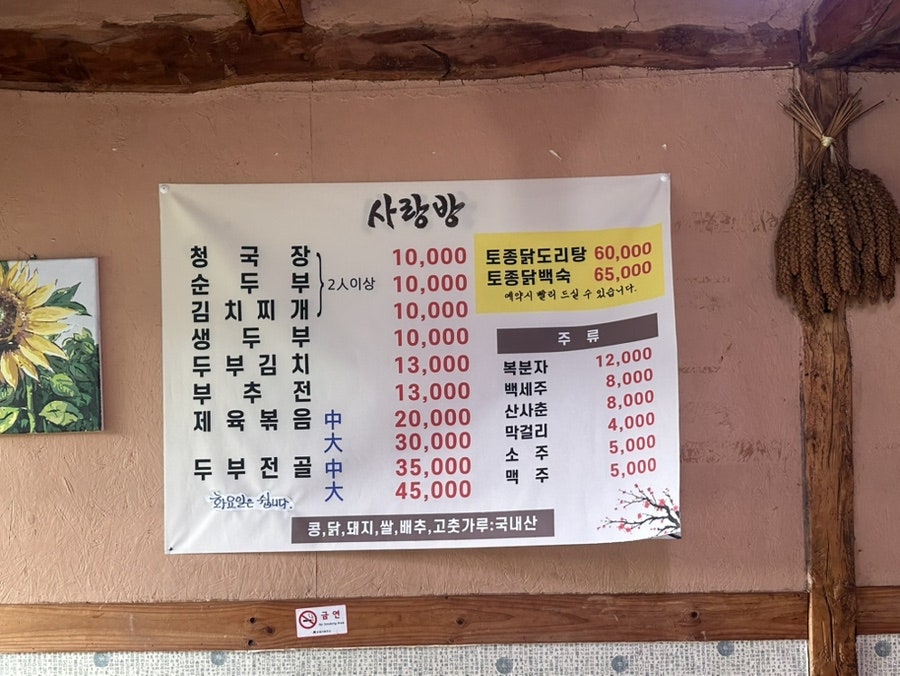 사랑방
청국장 10,000
순두부 2人이상 10,000
김치찌개 10,000
생두부 10,000
두부김치 13,000
부추전 13,000
제육볶음 中 20,000
大 30,000
두부전골 中 35,000
大 45,000
화요일은 쉽니다.
토종닭도리탕 60,000
토종닭백숙 65,000
예약시 빨리 드실 수 있습니다.
주류
복분자 12,000
백세주 8,000
산사춘 8,000
막걸리 4,000
소주 5,000
맥주 5,000
콩,닭,돼지,쌀,배추,고춧가루:국내산
금연
No Smoking Area